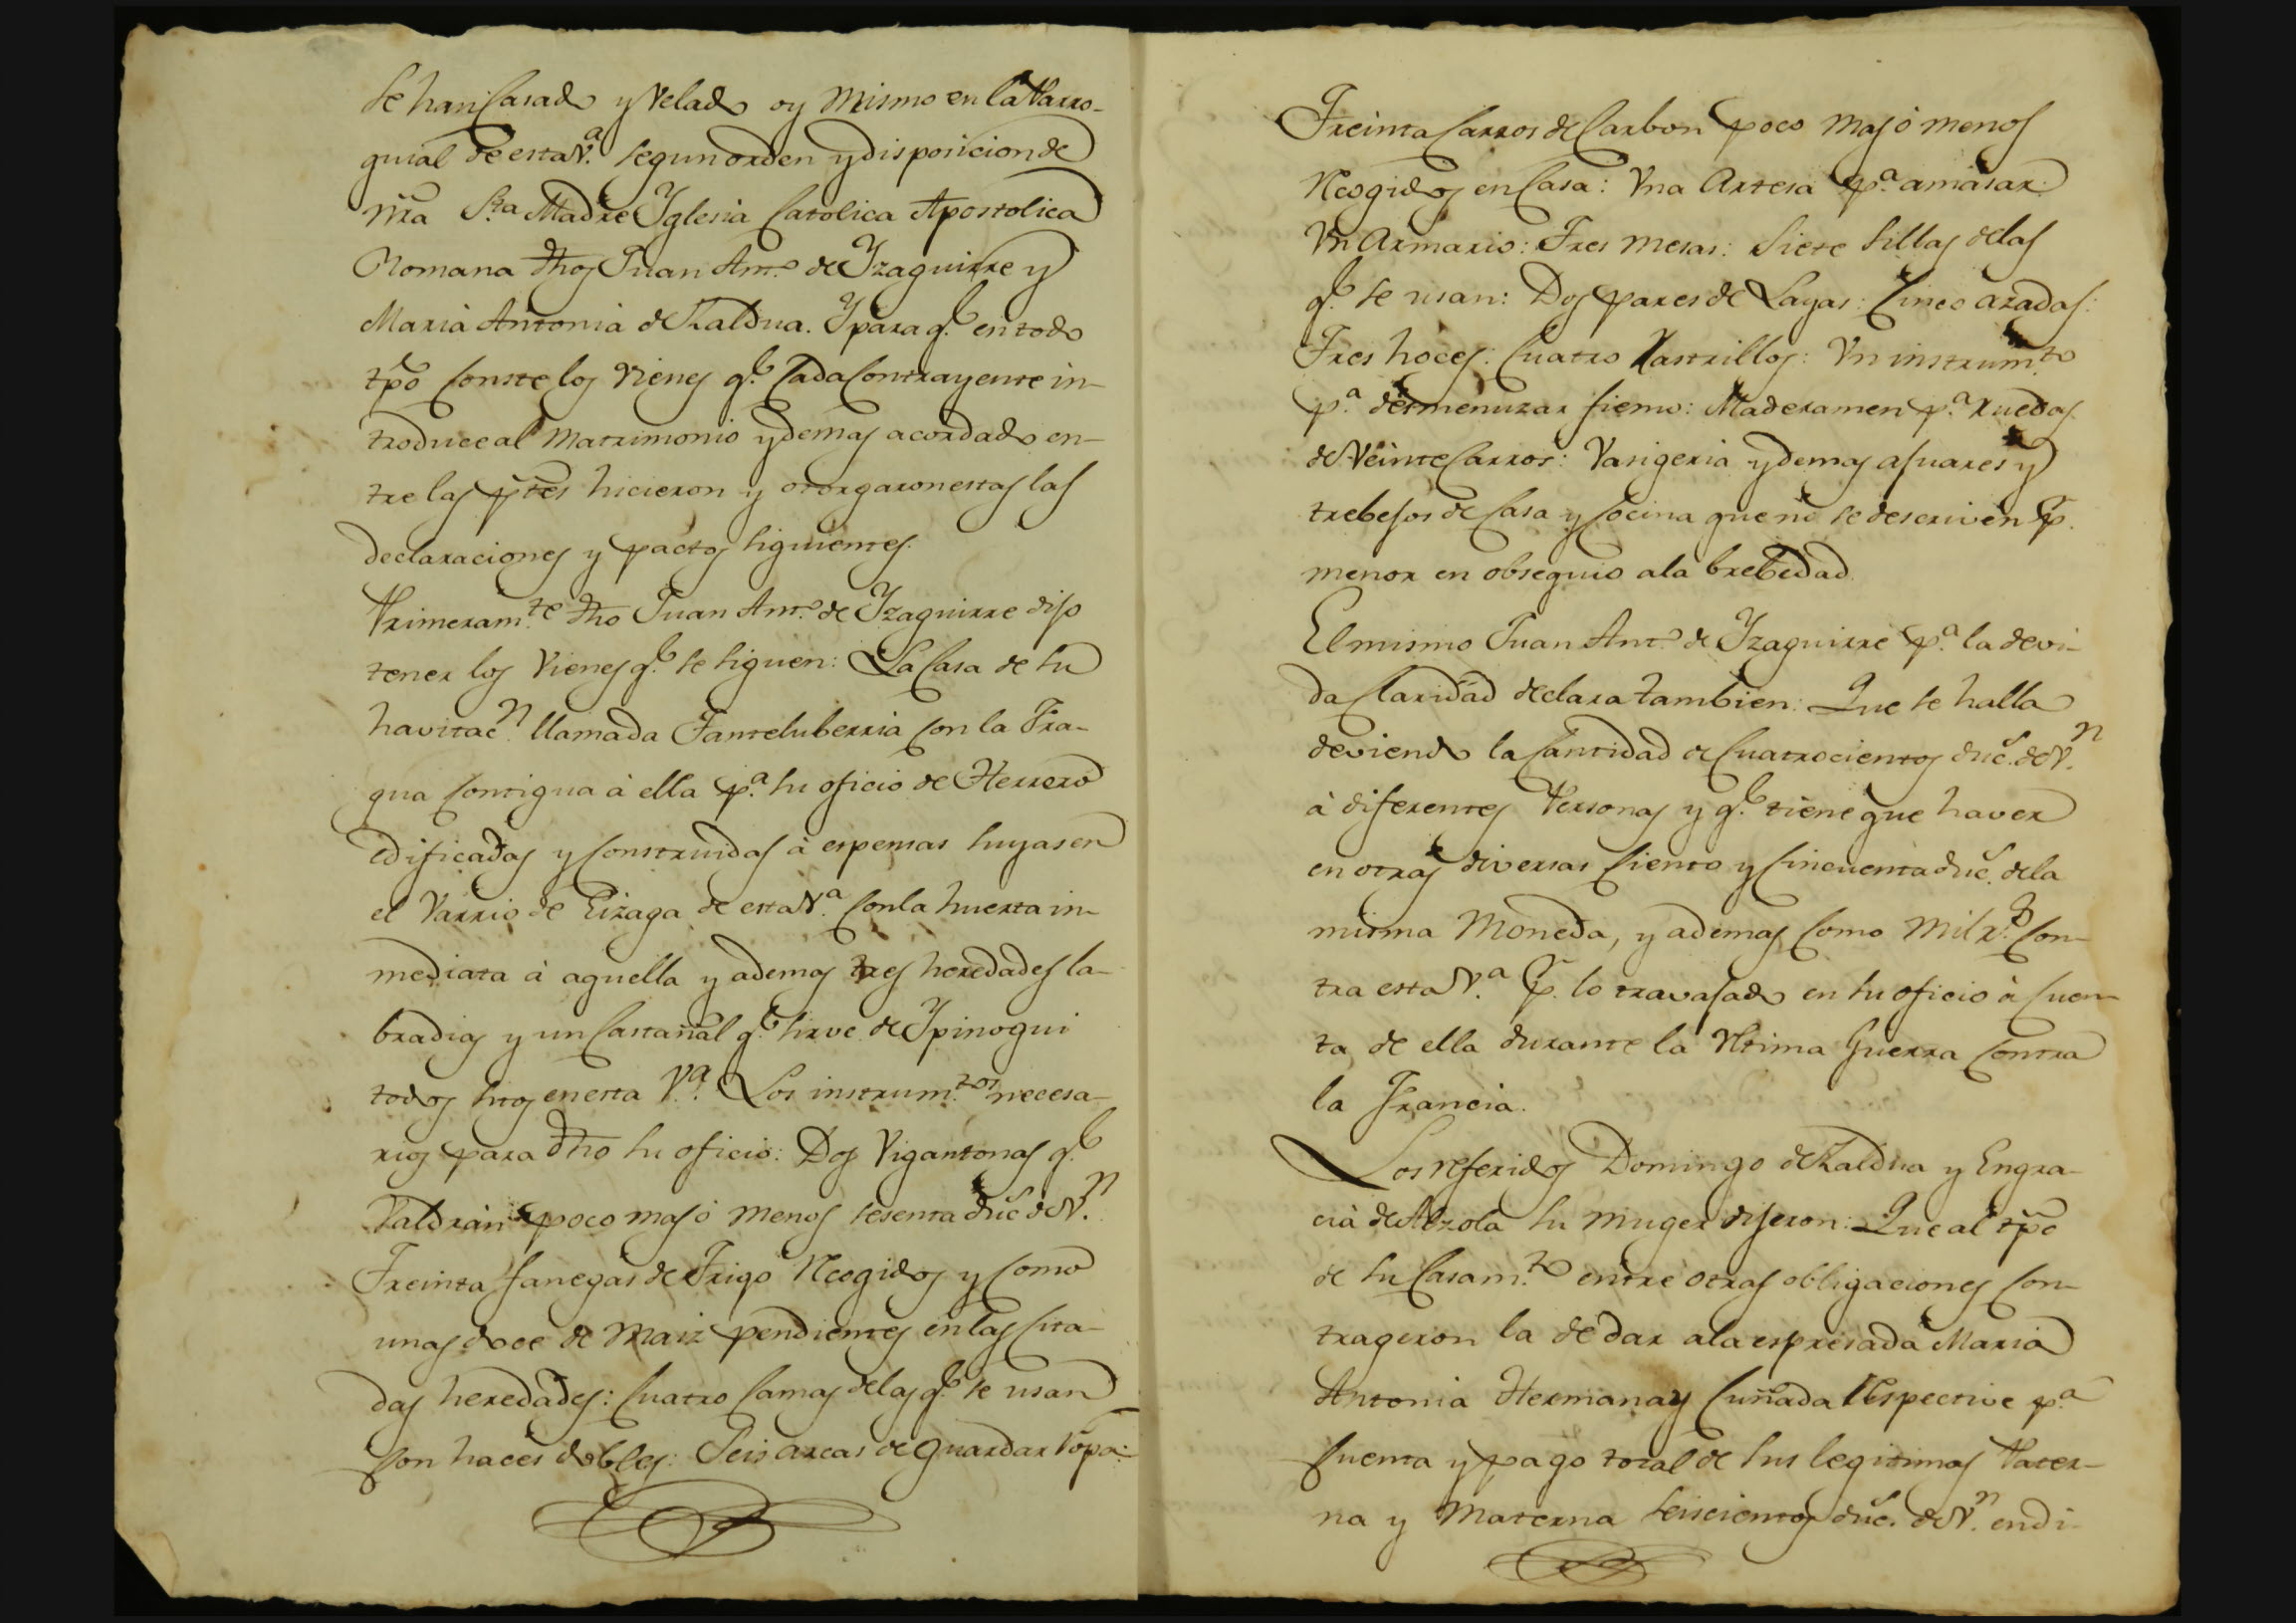 Se han Casado y Velado oy mismo en la Parro-
quial de esta V.ª segun orden y disposicion de
nrã S.ta Madre Yglesia Catolica Apostolica
Romana dhõs Juan Ant.º de Yzaguirre y
Maria Antonia de Zaldua. Y para q.e en todo
tpõ conste los vienes q.e Cada Contrayente in-
troduce al Matrimonio y demas acordado en-
tre las ptẽs hicieron y otorgaron estas las
declaraciones y pactos siguientes.
Primeram.te dhõ Juan Ant.º de Yzaguirre dijo
tener los Vienes q.e se siguen: La Casa de su
havitac.n llamada Janteluberria Con la Fra-
gua Contigua à ella p.ª su oficio de Herrero
edificadas y Construidas à espensas suyas en
el Varrio de Eizaga de esta V.ª Con la huerta in-
mediata à aquella y ademas tres heredades la-
bradias y un Castañal q.e sirve de Ypinogui
todos sitos en esta V.ª Los instrum.tos necesa-
rios para dhõ su oficio: Dos Vigantonas q.e
Valdran poco mas ó menos sesenta duc.s de V.n
Treinta fanegas de Trigo Recogidos y como
unas doce de Maiz pendientes en las cita-
das heredades: Cuatro Camas de las q.e se usan
Con haces dobles: Seis arcas de guardar ropa:
Treinta Carros de Carbon poco mas ó menos
Recogidos en Casa: Vna Artesa p.ª amasar:
Vn Armario: Tres mesas: Siete Sillas de las
q.e se usan: Dos pares de Layas: Cinco azadas:
Tres hoces: Cuatro Rastrillos: Vn instrum.to
p.ª desmenuzar fiemo: Maderamen p.ª ruedas
de Veinte Carros: Vasigeria y demas ajuares y
trebejos de Casa y Cocina que no se descriven p.r
menor en obsequio a la brebedad.
El mismo Juan Ant.º de Yzaguirre p.ª la devi-
da Claridad declara tambien: Que se halla
deviendo la Cantidad de Cuatrocientos duc.s de V.n
à diferentes Personas y q.e tiene que haver
en otras diversas Ciento y Cincuenta duc.s de la
misma Moneda, y ademas Como Mil r.s Con-
tra esta V.ª p.r lo travajado en su oficio à Cuen-
ta de ella durante la Vltima Guerra Contra
la Francia.
Los referidos Domingo de Zaldua y Engra-
cia de Alzola su muger dijeron: Que al tpõ
de su Casam.to entre otras obligaciones Con-
trageron la de dar a la espresada Maria
Antonia Hermana y Cuñada Respective p.ª
Cuenta y pago total de sus legitimas Pater-
na y Materna seiscientos duc.s de V.n en di-